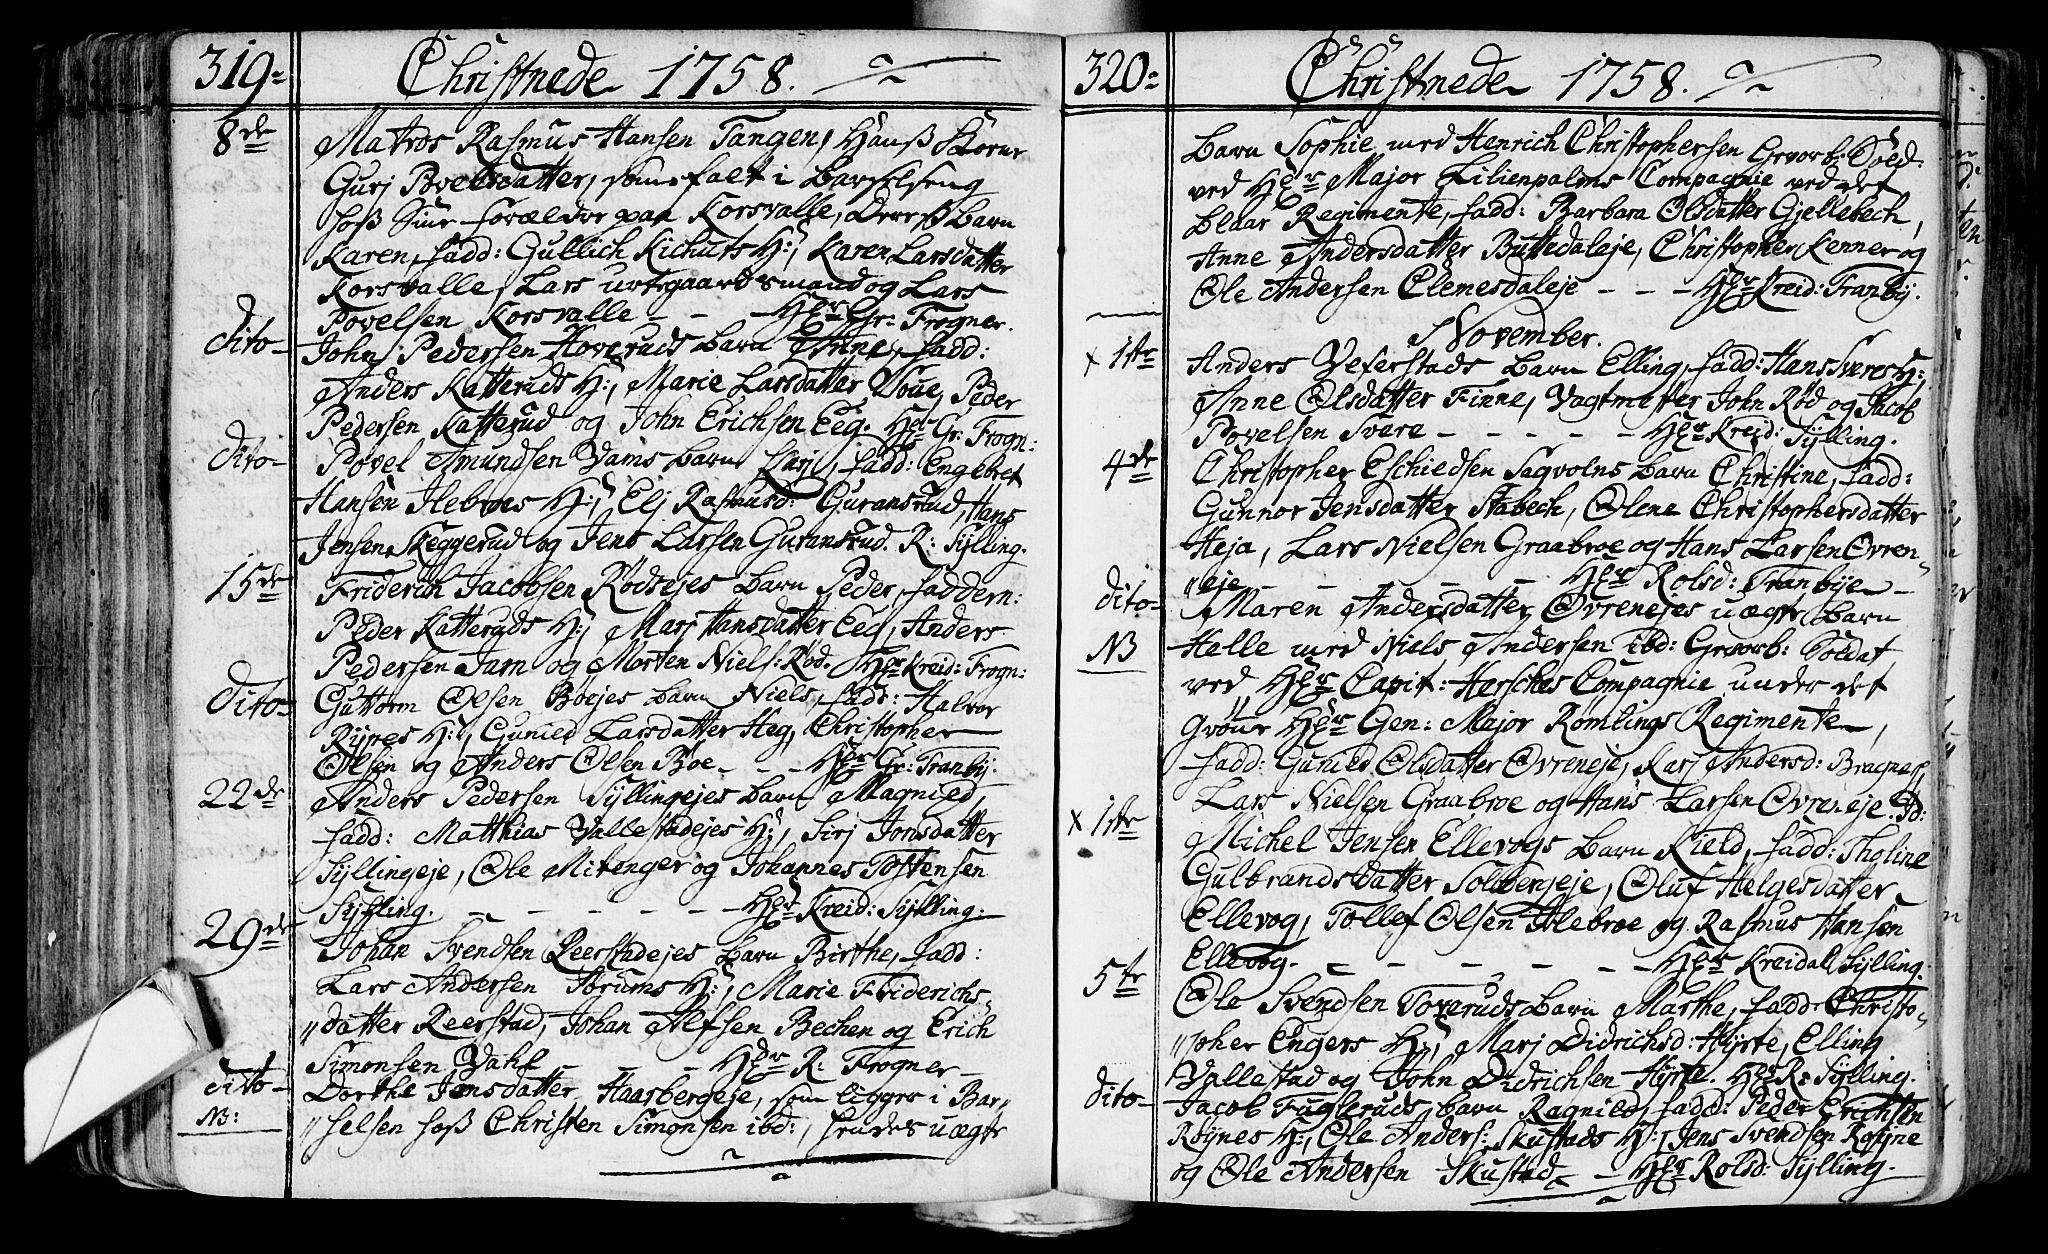 319.
Christnede 1758.
8de
Matros Rasmus Hansen Tangen, Hanß Kone
Gurj Povelsdatter, som falt i Barselseng
hoß Sine Forældre paa Korsvalle, deres barn
Karen, fadd: Gullich Kichuts H:, Karen Larsdatter
Korsvalle, Lars urtegaardsmand og Lars
Povelsen Korsvalle - - - Hr Gr: Frogner.
dito- John Pedersen Hoveruds barn Anne, fadd:
Anders Katteruds H:, Marie Larsdatter Poue, Peder
Pedersen Katterud og John Erichsen Eeg. Hr Gr: Frogn:
dito- Povel Amundsen Vams barn Karj, fadd: Engebret
Hansen Hebroes H:, Elj Rasmusd: Guransrud, Hans
Jensen Skeggerud og Jens Larsen Guransrud. R: Sylling.
15de Friderich Jacobsen Rødsejes barn Peder, faddern:
Peder Katteruds H:, Marj Hansdatter Eeg, Anders
Pedersen Tam og Morten Niels: Rød. Hr Kreid: Frogn:
dito- Guttorm Olsen Boejes barn Niels, fadd: Halvor
Rynes H:, Gunild Larsdatter Heg, Christopher
Olsen og Anders Olsen Boe - - - Hr Gr: Tranby.
22de Anders Pedersen Syllingejes barn Magnild,
fadd: Matthias Vallestadejes H:, Sirj Jonsdatter
Syllingeje, Ole Mitenger og Johannes Tostensen
Sylling. - - - - - - Hr Kreid: Sylling.
29de Johan Svendsen Reerstadejes barn Birthe, fadd:
Lars Andersen Ibrums H:, Marie Friderichs-
datter Reerstad, Johan Alfsen Bechen og Erich
Simonsen Vahl - - - Hr R: Frogner
dito- Dorthe Jensdatter Haarbergeje, som ligger i Bar-
N: selsen hoß Christen Simonsen ibd:, hendes uægte
320.
Christnede 1758.
barn Sophie med Henrich Christophersen Gevorb: Sold:
ved Hr Major Lilienpalms Compagnie ved det
blaae Regimente, fadd: Barbara Olsdatter Gjellebech,
Anne Andersdatter Buttedaleje, Christopher Kenner og
Ole Andersen Clemesdaleje - - - Hr Kreid: Tranby.
November.
x 1ste Anders Veferstads barn Elling, fadd: Hans Sveres H:,
Anne Olsdatter Finne, Vagtmester John Rød og Jacob
Povelsen Svere - - - - - Hr Kreid: Sylling.
4de Christopher Eschiedsen Sagvolns barn Christine, fadd:
Gunnor Jensdatter Stabech, Olene Christophersdatter
Heja, Lars Nielsen Graabroe og Hans Larsen Ovren-
eje - - - - - Hr Rolsd: Tranbye
dito- Maren Andersdatter Ovrenejes uægte barn
NB Helle med Niels Andersen ibd: Gevorb: Soldat
ved Hr Capit: Hersches Compagnie under det
grønne Hr Gen: Major Rømlings Regimente,
fadd: Gunild Olsdatter Ovreneje, Karj Andersd: Bragnes,
Lars Nielsen Graabroe og Hans Larsen Ovreneje. Id:
x 1ste Michel Jensen Ellevogs barn Kield, fadd: Tholine
Gulbrandsdatter Solbergeje, Oluf Helgesdatter
Ellevog, Tollef Olsen Holebroe og Rasmus Hansen
Ellevog. - - - - - - Hr Kreidal Sylling.
5te Ole Svendsen Toveruds barn Marthe, fadd: Christo-
pher Engers H:, Marj Didrichsd: Hyrte, Elling
Vallestad og John Didrichsen Hyrte. Hr R: Sylling.
dito- Jacob Fugleruds barn Ragnild, fadd: Peder Erichsen
Røynes H:, Ole Anders: Skustads H:, Jens Svendsen Røyne
og Ole Andersen Skustad - Hr Rolsd: Sylling.